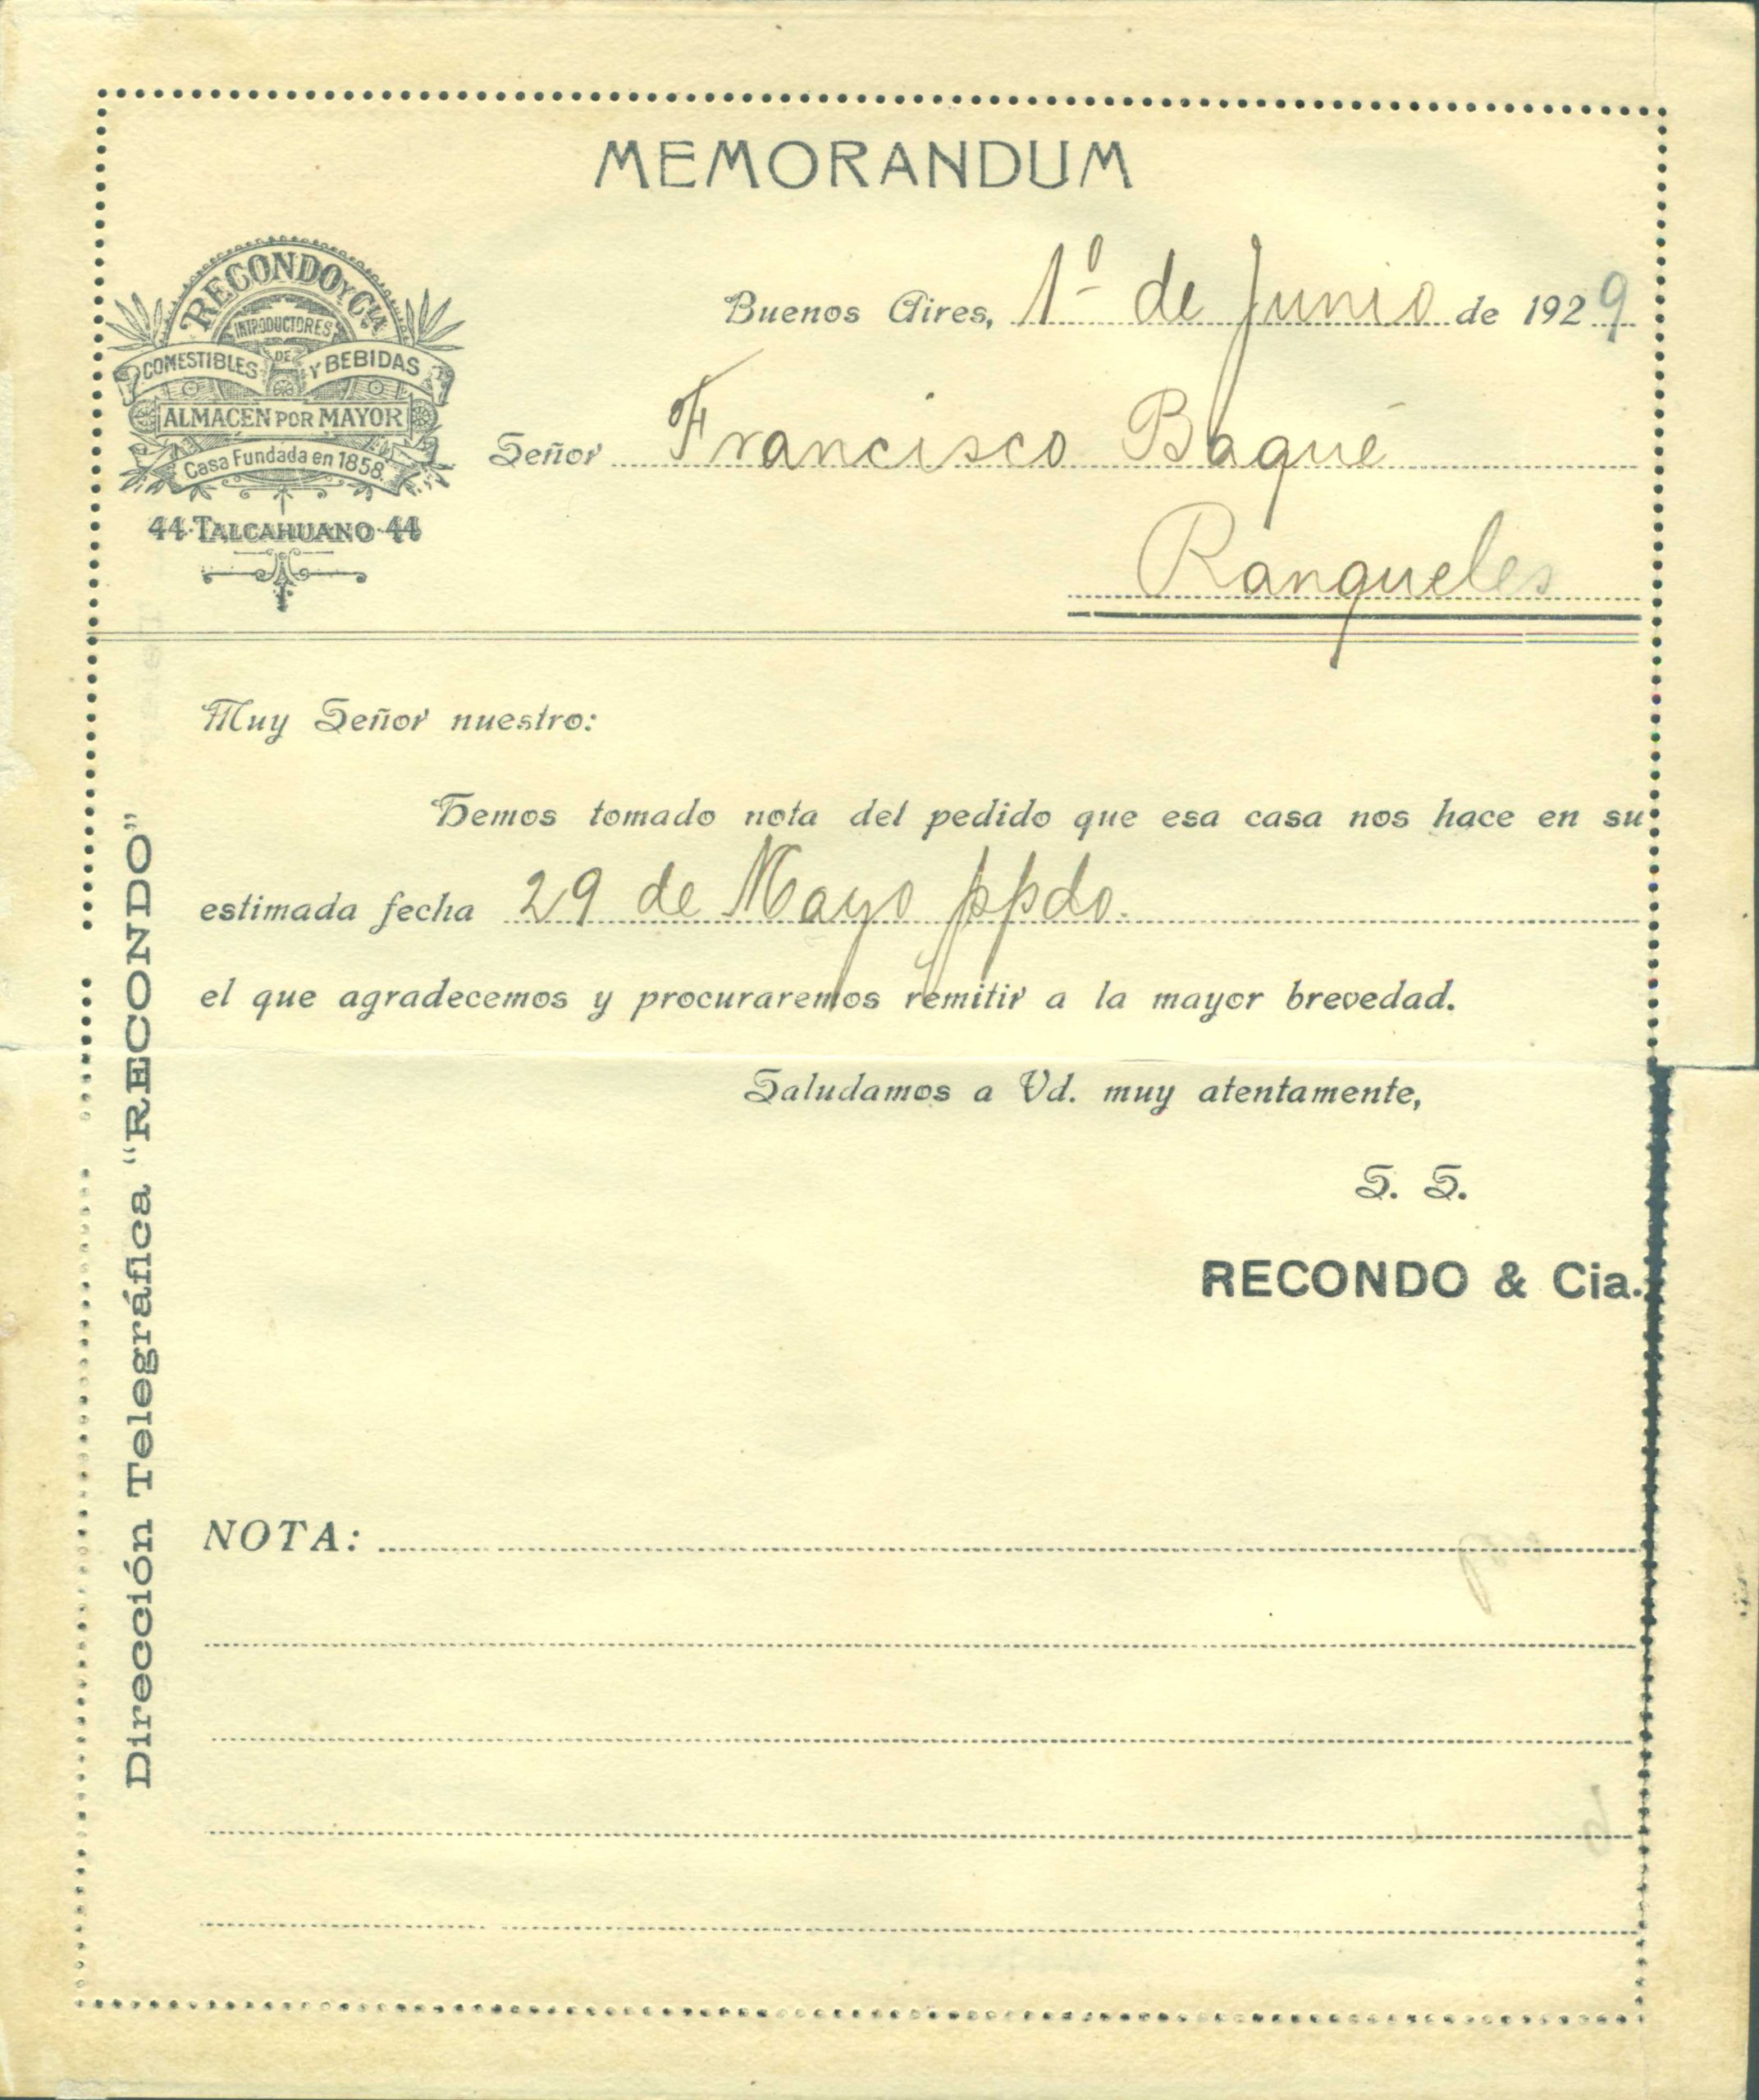 MEMORANDUM
RECONDO Y Cia
INTRODUCTORES
DE
COMESTIBLES Y BEBIDAS
ALMACEN POR MAYOR
Casa Fundada en 1858.
44·TALCAHUANO·44
Buenos Aires, 1º de Junio de 1929
Señor Francisco Baqué
Ranqueles
Muy Señor nuestro:
Hemos tomado nota del pedido que esa casa nos hace en su
estimada fecha 29 de Mayo ppdo.
el que agradecemos y procuraremos remitir a la mayor brevedad.
Saludamos a Vd. muy atentamente,
S. S.
RECONDO & Cia.
Dirección Telegráfica "RECONDO"
NOTA: